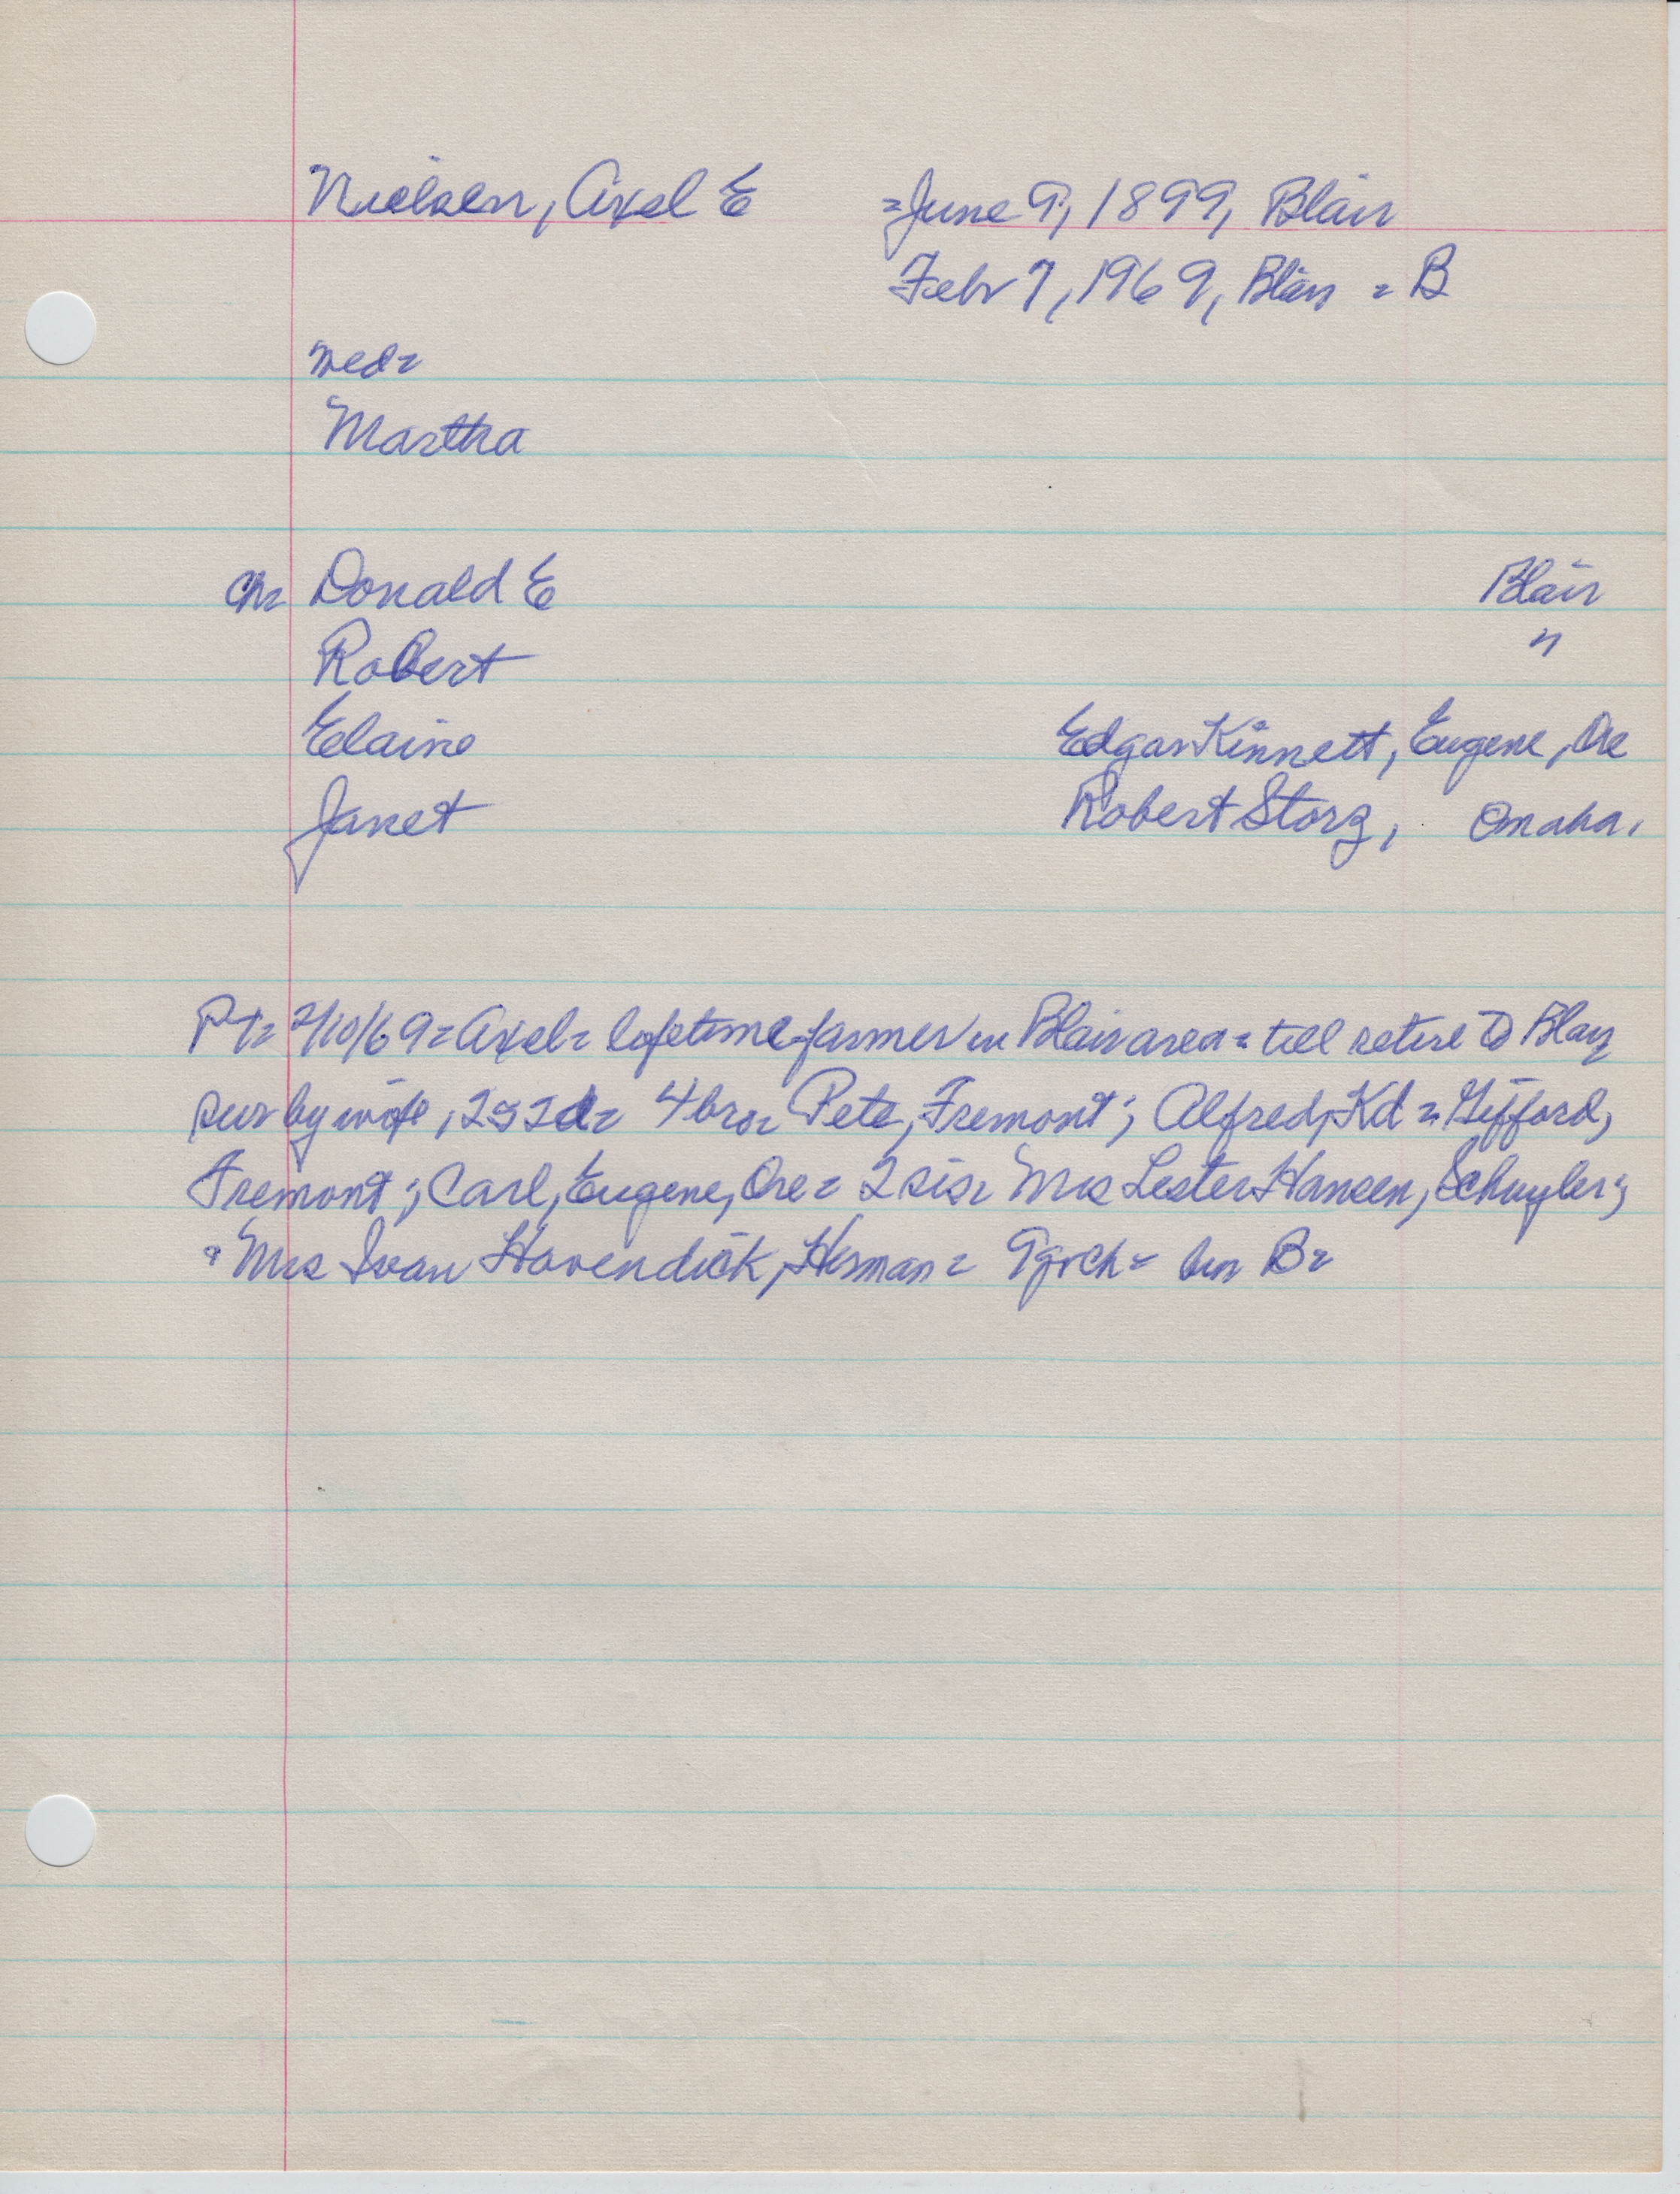 Nielsen, Axel E =June 9, 1899, Blair
Febr 7, 1969, Blair = B
wed=
Martha
Ch= Donald E Blair
Robert "
Elaine Edgar Kinnett, Eugene, Ore
Janet Robert Storz, Omaha.
PT= 2/10/69= Axel= lifetime farmer in Blair area = till retire to Blair
sur by wife, 2s 2d= 4 bro= Pete, Fremont; Alfred, Kd = Gifford,
Fremont; Carl, Eugene, Ore = 2 sis= Mrs Lester Hansen, Schuyler;
= Mrs Ivan Havendick, Herman = 9grch= bur B=